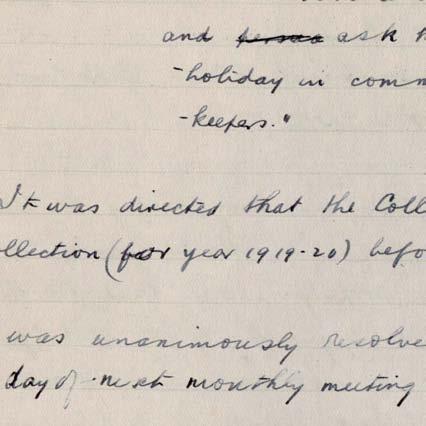 and ~~persua~~ ask
-holiday in comm
-keepers."
It was directed that the Coll
ollection (for year 1919-20) befo
was unanimously resolve
day of next monthly meeting